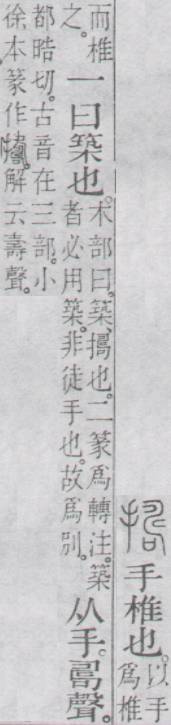 手椎也。
以手
爲椎
而椎
之。
一曰築也。
木部曰。築、擣也。二篆爲轉注。築
者必用築。非徒手也。故爲別。
从手。𠷎聲。
都晧切。古音在三部。小
徐本篆作解云壽聲。